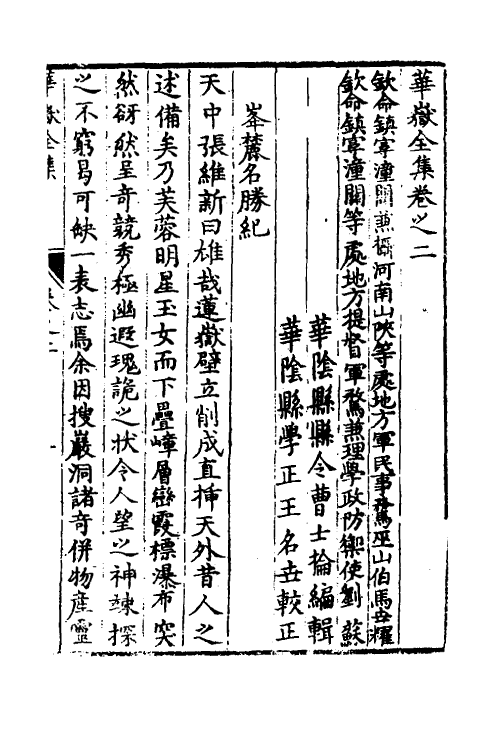 華嶽全集卷之二
欽命鎮寧潼關兼攝河南山陝等處地方軍民事務馬巫山伯馬世耀
欽命鎮寧潼關等處地方提督軍務兼理學政防禦使劉蘇
華陰縣縣令曹士掄編輯
華陰縣學正王名世較正
峯麓名勝紀
天中張維新曰雄哉蓮嶽壁立削成直挿天外昔人之
述備矣乃芙蓉明星玉女而下疊嶂層巒霞標瀑布突
然谺然呈奇競秀極幽遐瑰詭之狀令人望之神竦探
之不窮曷可缺一表志焉余因搜巖洞諸奇併物産靈
華嶽全集
卷之二
一